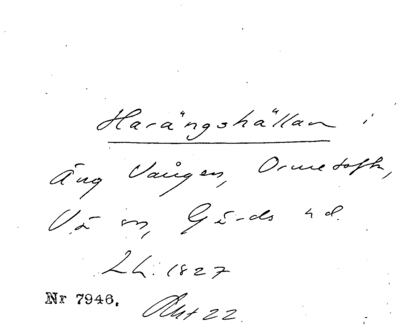 Harängshällan i
äng Vången, Ormetofta,
Vä sn, Gärds hd.
LL. 1827
Nr 7946. Akt 22